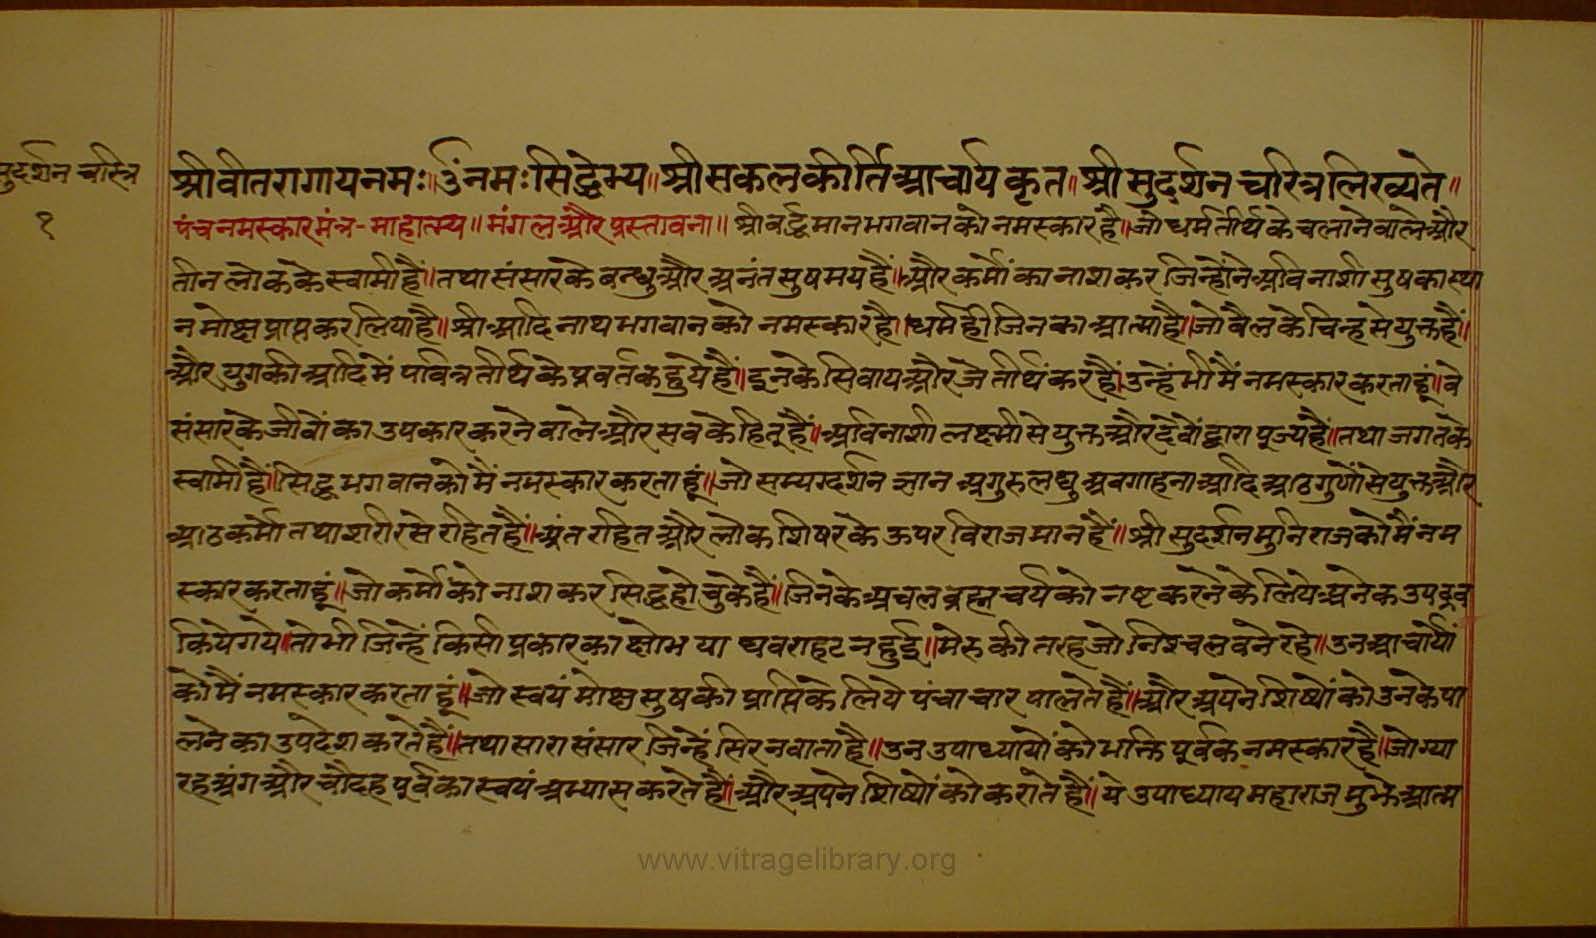 सुदर्शन चरित्र
१
श्रीवीतरागायनमः॥ॐनमःसिद्धेभ्य॥श्रीसकलकीर्तिआचार्यकृत॥श्रीसुदर्शनचरित्रलिख्यते॥
पंचनमस्कारमंत्र-माहात्म्य॥मंगलऔरप्रस्तावना॥श्रीवर्द्धमानभगवानकोनमस्कारहै॥जोधर्मतीर्थकेचलानेवालेऔर
तीनलोककेस्वामीहैं॥तथासंसारकेबन्धुऔरअनंतसुषमयहैं॥औरकर्मोंकानाशकरजिन्होंनेअविनाशीसुषकास्था
नमोक्षप्राप्तकरलियाहै॥श्रीआदिनाथभगवानकोनमस्कारहै॥धर्महीजिनकाआत्माहै॥जोबैलकेचिन्हसेयुक्तहैं॥
औरयुगकीआदिमेंपवित्रतीर्थकेप्रवर्तकहुयेहैं॥इनकेसिवायऔरजेतीर्थंकरहैं॥उन्हेंभीमैंनमस्कारकरताहूं॥वे
संसारकेजीवोंकाउपकारकरनेवालेऔरसवकेहितूहैं॥अविनाशीलक्ष्मीसेयुक्तऔरदेवोंद्वारापूज्यहैं॥तथाजगतके
स्वामीहैं॥सिद्धभगवानकोमैंनमस्कारकरताहूं॥जोसम्यग्दर्शनज्ञानअगुरुलघुअवगाहनाआदिआठगुणोंसेयुक्तऔर
आठकर्मोतथाशरीरसेरहितहैं॥अंतरहितऔरलोकशिषरकेऊपरविराजमानहैं॥श्रीसुदर्शनमुनिराजकोमैंनम
स्कारकरताहूं॥जोकर्मोकोनाशकरसिद्धहोचुकेहैं॥जिनकेअचलव्रह्मचर्यकोनष्टकरनेकेलियेअनेकउपद्रव
कियेगये॥तोभीजिन्हेंकिसीप्रकारकाक्षोभयाघवराहटनहुई॥मेरुकीतरहजोनिश्चलवनेरहे॥उनआचार्यों
कोमैंनमस्कारकरताहूं॥जोस्वयंमोक्षसुषकीप्राप्तिकेलियेपंचाचारपालतेहैं॥औरअपनेशिष्योंकोउनकेपा
लनेकाउपदेशकरतेहैं॥तथासारासंसारजिन्हेंसिरनवाताहै॥उनउपाध्यायोंकोभक्तिपूर्वकनमस्कारहै॥जोग्या
रहअंगऔरचौदहपूर्वकास्वयंअभ्यासकरतेहैं॥औरअपनेशिष्योंकोकरातेहैं॥येउपाध्यायमहाराजमुझेआत्म
www.vitragelibrary.org